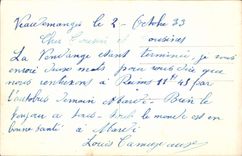 le 2 Octobre 33
Cher Cousin et Cousine
La Vendange étant terminée, je vous
envoie deux mots pour vous dire que
nous rentrerons à Reims 11h45 par
l'autobus demain Mardi. Bien le
bonjour à tous. tout le monde est en
bonne santé à Mardi
Louis